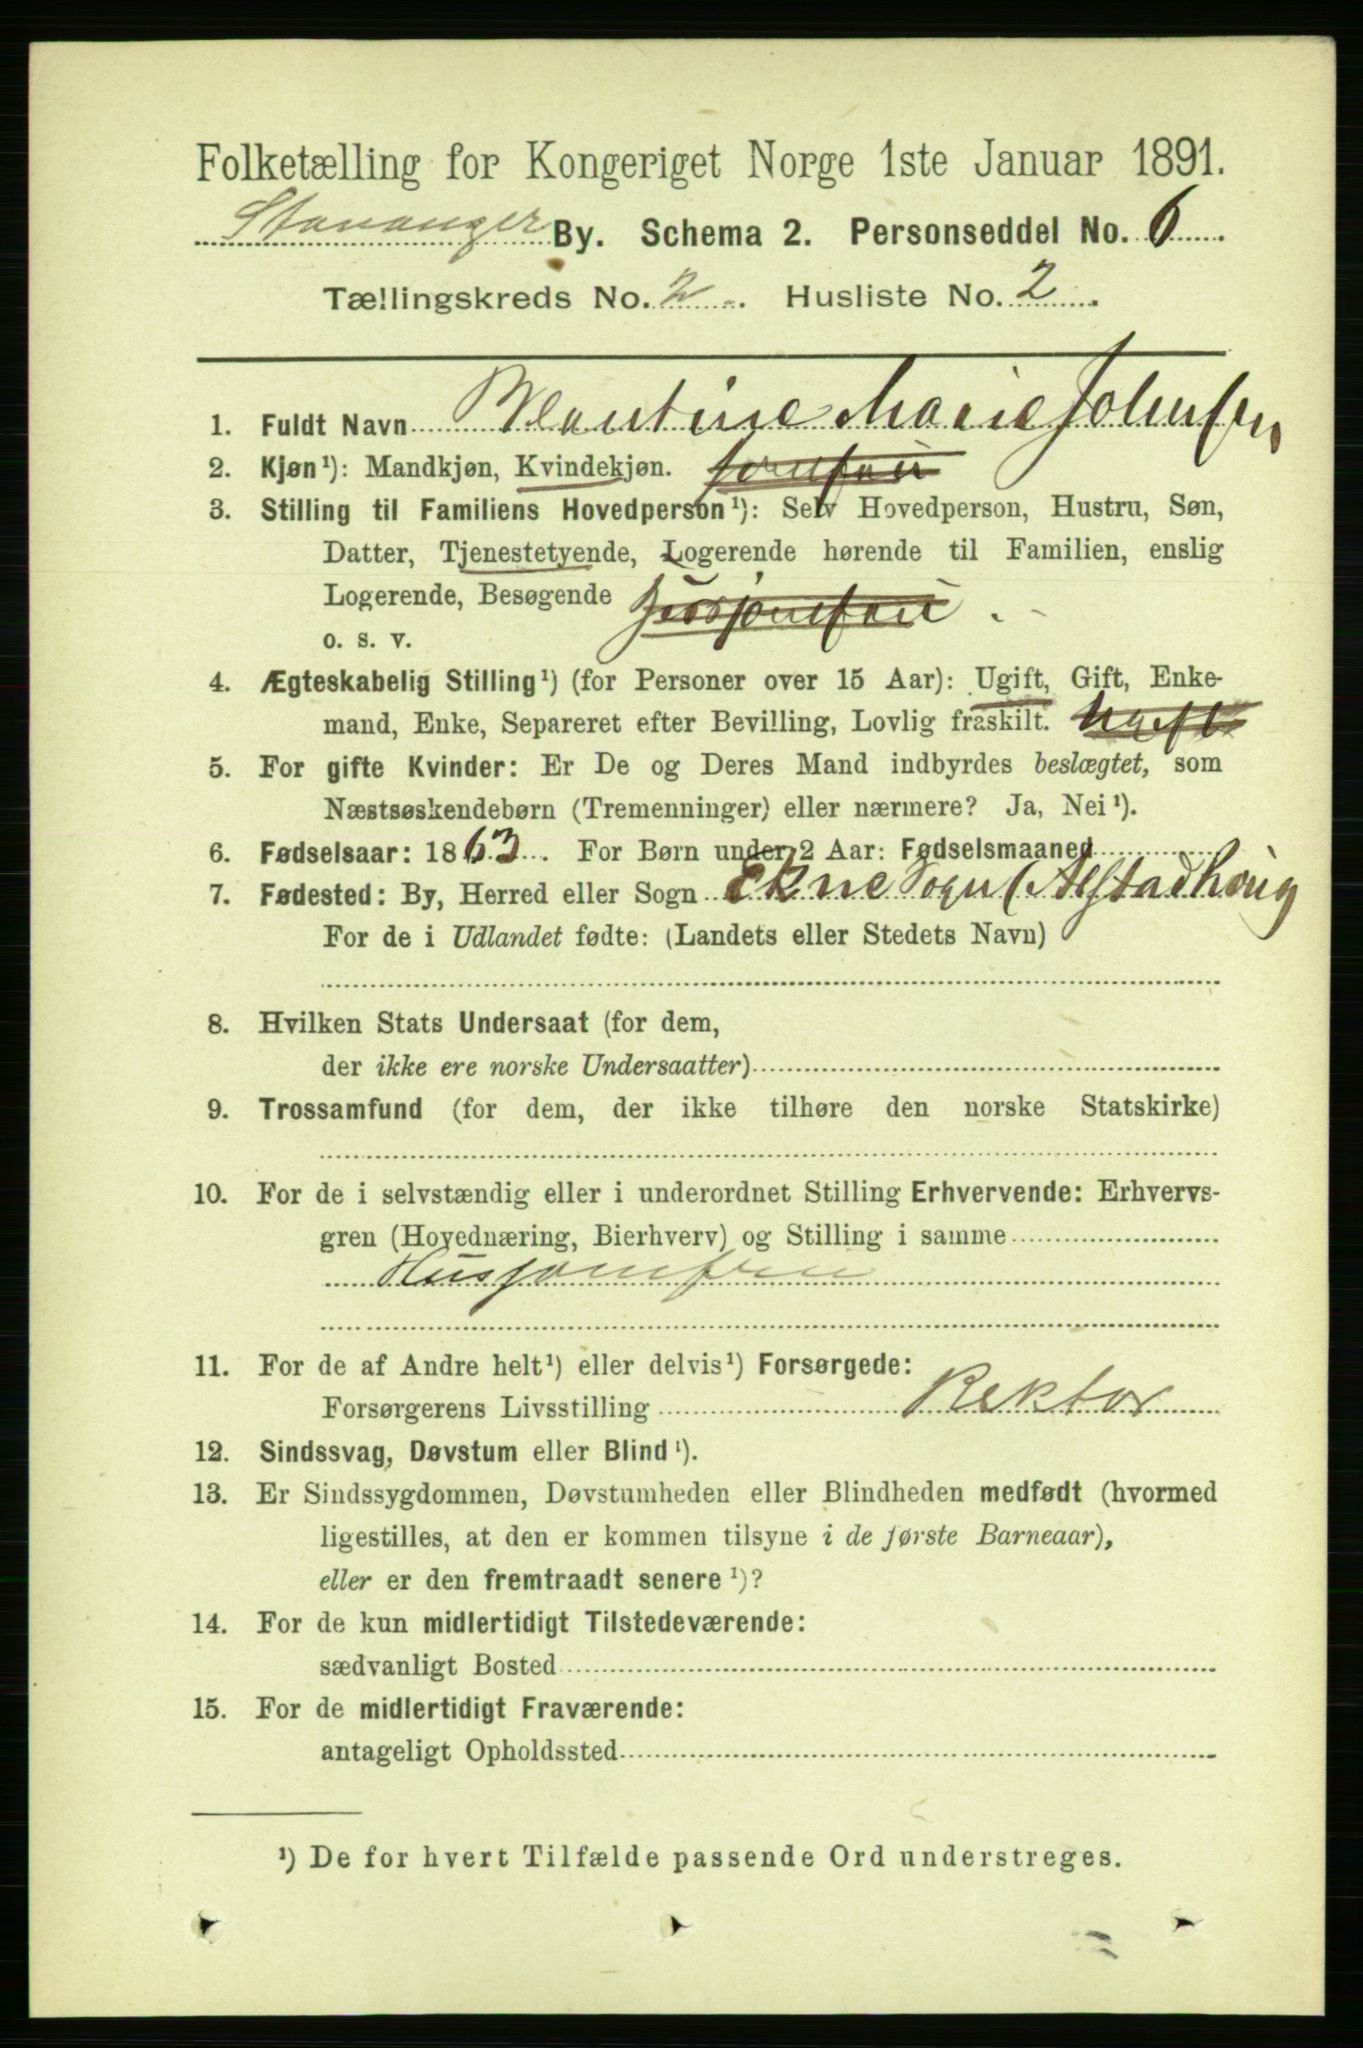 Folketælling for Kongeriget Norge 1ste Januar 1891.
Stavanger By. Schema 2. Personseddel No. 6
Tællingskreds No. 2. Husliste No. 2.
1. Fuldt Navn Marie Johnsen
2. Kjøn¹): Mandkjøn, Kvindekjøn. Jomfru
3. Stilling til Familiens Hovedperson¹): Selv Hovedperson, Hustru, Søn,
Datter, Tjenestetyende, Logerende hørende til Familien, enslig
Logerende, Besøgende Husjomfru.
o. s. v.
4. Ægteskabelig Stilling¹) (for Personer over 15 Aar): Ugift, Gift, Enke-
mand, Enke, Separeret efter Bevilling, Lovlig fraskilt. Ugift
5. For gifte Kvinder: Er De og Deres Mand indbyrdes beslægtet, som
Næstsøskendebørn (Tremenninger) eller nærmere? Ja, Nei¹).
6. Fødselsaar: 1863. For Børn under 2 Aar: Fødselsmaaned
7. Fødested: By, Herred eller Sogn Ekne Sogn (Alstadhoug
For de i Udlandet fødte: (Landets eller Stedets Navn)
8. Hvilken Stats Undersaat (for dem,
der ikke ere norske Undersaatter)
9. Trossamfund (for dem, der ikke tilhøre den norske Statskirke)
10. For de i selvstændig eller i underordnet Stilling Erhvervende: Erhvervs-
gren (Hovednæring, Bierhverv) og Stilling i samme
Husjomfru
11. For de af Andre helt¹) eller delvis¹) Forsørgede:
Forsørgerens Livsstilling Rektor
12. Sindssvag, Døvstum eller Blind¹).
13. Er Sindssygdommen, Døvstumheden eller Blindheden medfødt (hvormed
ligestilles, at den er kommen tilsyne i de første Barneaar),
eller er den fremtraadt senere¹)?
14. For de kun midlertidigt Tilstedeværende:
sædvanligt Bosted
15. For de midlertidigt Fraværende:
antageligt Opholdssted
¹) De for hvert Tilfælde passende Ord understreges.